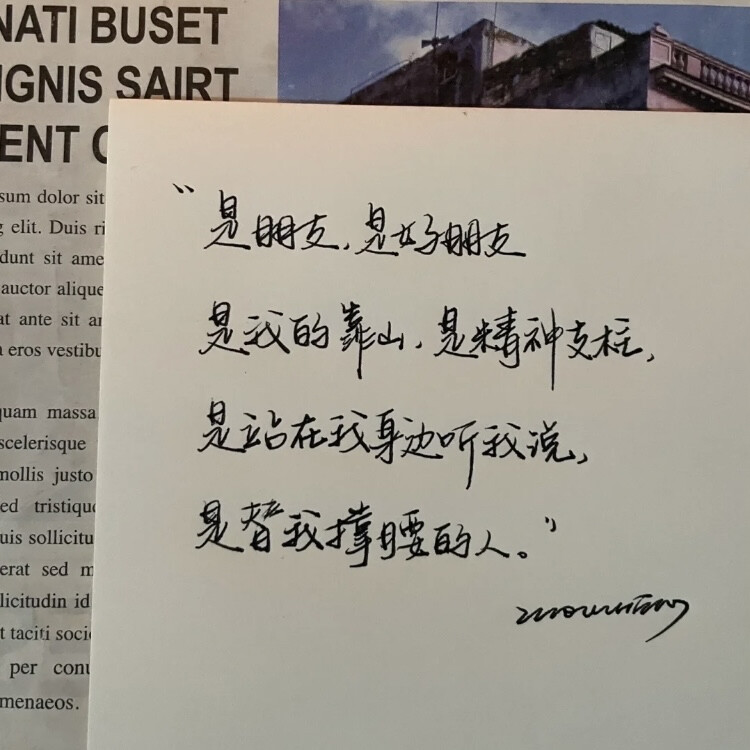 NATI BUSET
IGNIS SAIRT
ENT
sum dolor sit
elit. Duis
dunt sit ame
auctor alique
at ante sit
eros vestibu
quam massa
scelerisque
mollis justo
ed tristiqu
uis sollicitu
erat sed m
licitudin id
t taciti soci
per conu
menaeos.
“是朋友，是好朋友
是我的靠山，是精神支柱，
是站在我身边听我说，
是替我撑腰的人。”